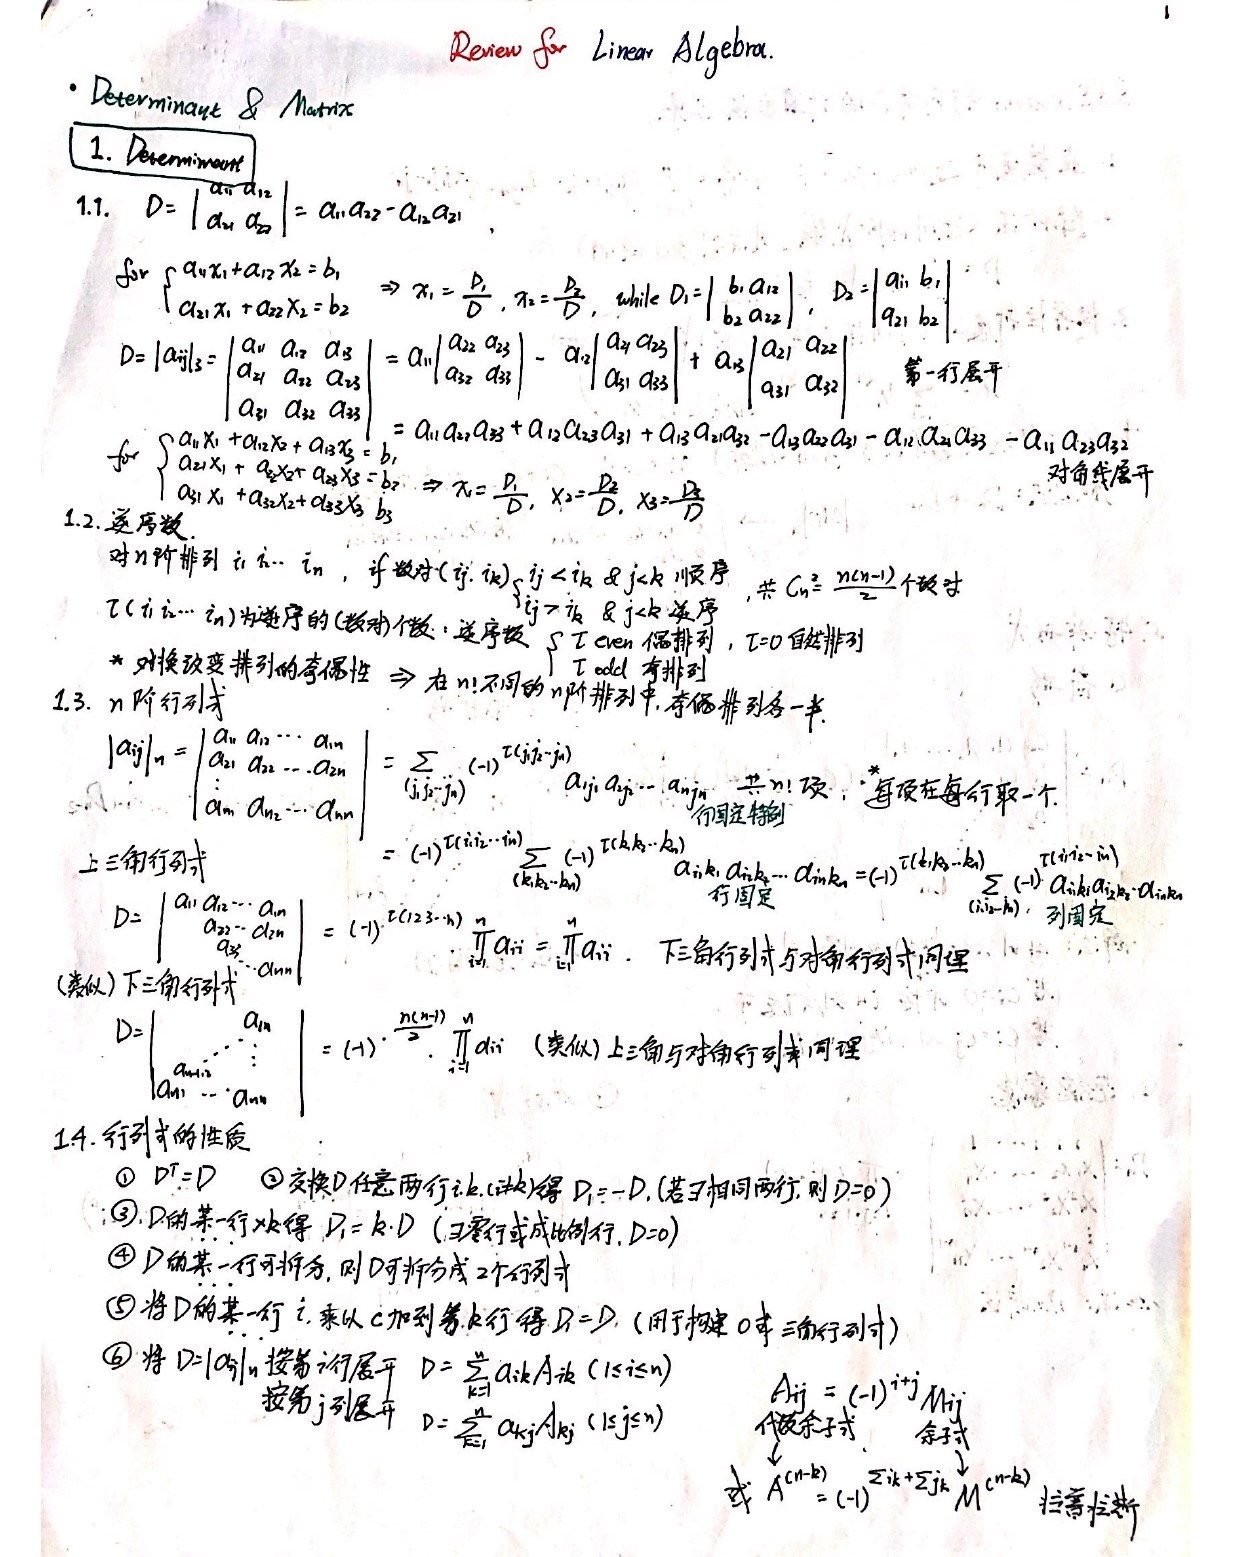 1
Review for Linear Algebra.
• Determinant & Matrix
1. Determinant
1.1. D = | a₁₁ a₁₂ ; a₂₁ a₂₂ | = a₁₁a₂₂ - a₁₂a₂₁,
for { a₁₁x₁ + a₁₂x₂ = b₁ ; a₂₁x₁ + a₂₂x₂ = b₂ ⇒ x₁ = D₁/D, x₂ = D₂/D, while D₁ = | b₁ a₁₂ ; b₂ a₂₂ |, D₂ = | a₁₁ b₁ ; a₂₁ b₂ |
D = |aij|₃ = | a₁₁ a₁₂ a₁₃ ; a₂₁ a₂₂ a₂₃ ; a₃₁ a₃₂ a₃₃ | = a₁₁| a₂₂ a₂₃ ; a₃₂ a₃₃ | - a₁₂| a₂₁ a₂₃ ; a₃₁ a₃₃ | + a₁₃| a₂₁ a₂₂ ; a₃₁ a₃₂ | 第一行展开
= a₁₁a₂₂a₃₃ + a₁₂a₂₃a₃₁ + a₁₃a₂₁a₃₂ - a₁₃a₂₂a₃₁ - a₁₂a₂₁a₃₃ - a₁₁a₂₃a₃₂
对角线展开
for { a₁₁x₁ + a₁₂x₂ + a₁₃x₃ = b₁ ; a₂₁x₁ + a₂₂x₂ + a₂₃x₃ = b₂ ; a₃₁x₁ + a₃₂x₂ + a₃₃x₃ b₃ ⇒ x₁ = D₁/D, x₂ = D₂/D, x₃ = D₃/D
1.2. 逆序数
对n阶排列 i₁ i₂ … iₙ, if 数对(ij, ik) { ij < ik & j<k 顺序 ; ij > ik & j<k 逆序, 共 Cₙ² = n(n-1)/2 个数对
τ(i₁ i₂ … iₙ)为逆序的(数对)个数: 逆序数 { τ even 偶排列, τ=0 自然排列 ; τ odd 奇排列
* 对换改变排列的奇偶性 ⇒ 在n!不同的n阶排列中, 奇偶排列各一半.
1.3. n阶行列式
|aij|ₙ = | a₁₁ a₁₂ … a₁ₙ ; a₂₁ a₂₂ … a₂ₙ ; ⋮ ; aₙ₁ aₙ₂ … aₙₙ | = Σ(j₁j₂…jₙ) (-1)^τ(j₁j₂…jₙ) a₁j₁ a₂j₂ … aₙjₙ 共n!项, * 每项在每行取一个.
行固定特例
= (-1)^τ(i₁i₂…iₙ) Σ(k₁k₂…kₙ) (-1)^τ(k₁k₂…kₙ) ai₁k₁ ai₂k₂ … aiₙkₙ = (-1)^τ(k₁k₂…kₙ) Σ(i₁i₂…iₙ) (-1)^τ(i₁i₂…iₙ) ai₁k₁ ai₂k₂ … aiₙkₙ
行固定 列固定
上三角行列式
D = | a₁₁ a₁₂ … a₁ₙ ; a₂₂ … a₂ₙ ; a₃₃ ; … aₙₙ | = (-1)^τ(123…n) ∏ⁿᵢ₌₁ aii = ∏ⁿᵢ₌₁ aii. 下三角行列式与对角行列式同理
(类似)下三角行列式
D = | a₁ₙ ; ⋰ ⋮ ; aₙ₋₁₂ ; aₙ₁ … aₙₙ | = (-1)^n(n-1)/2 · ∏ⁿᵢ₌₁ aii (类似)上三角与对角行列式同理
1.4. 行列式的性质
① Dᵀ = D ② 交换D任意两行i,k,(i≠k)得 D₁ = -D, (若∃相同两行, 则D=0)
③ D的某一行×k得 D₁ = k·D (∃零行或成比例行, D=0)
④ D的某一行可拆分, 则D可拆分成2个行列式
⑤ 将D的某一行i, 乘以c加到第k行得 D₁ = D, (用于构建0或三角行列式)
⑥ 将 D = |aij|ₙ 按第i行展开 D = Σⁿₖ₌₁ aik Aik (1≤i≤n)
按第j列展开 D = Σⁿₖ₌₁ akj Akj (1≤j≤n)
Aij = (-1)^i+j Mij
代数余子式 余子式
或 A^(n-k) = (-1)^Σik+Σjk M^(n-k) 拉普拉斯